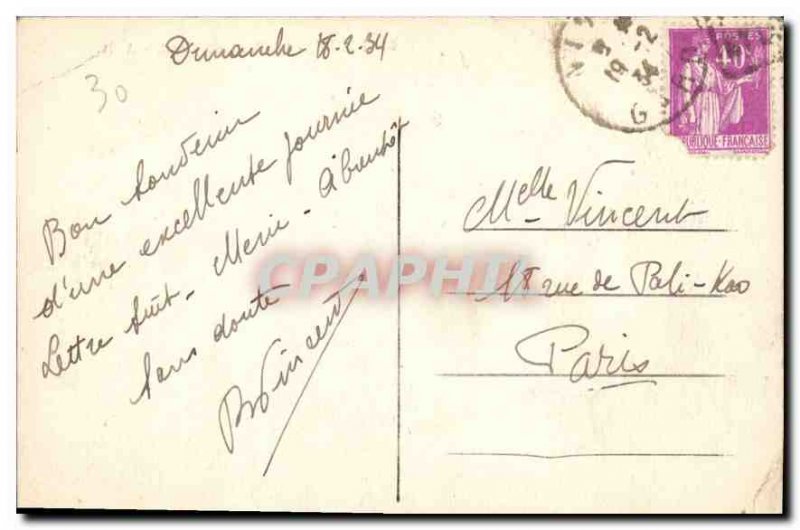 Dimanche 18-2-34
30
Bon souvenir
d'une excellente journée
Lettre suit - Merci - A bientôt
sans doute
Vincent
POSTES
40
PUBLIQUE·FRANÇAISE
19 -2
34
GARD
Melle Vincent
18 rue de Pali-Kao
Paris
CPAPHTI